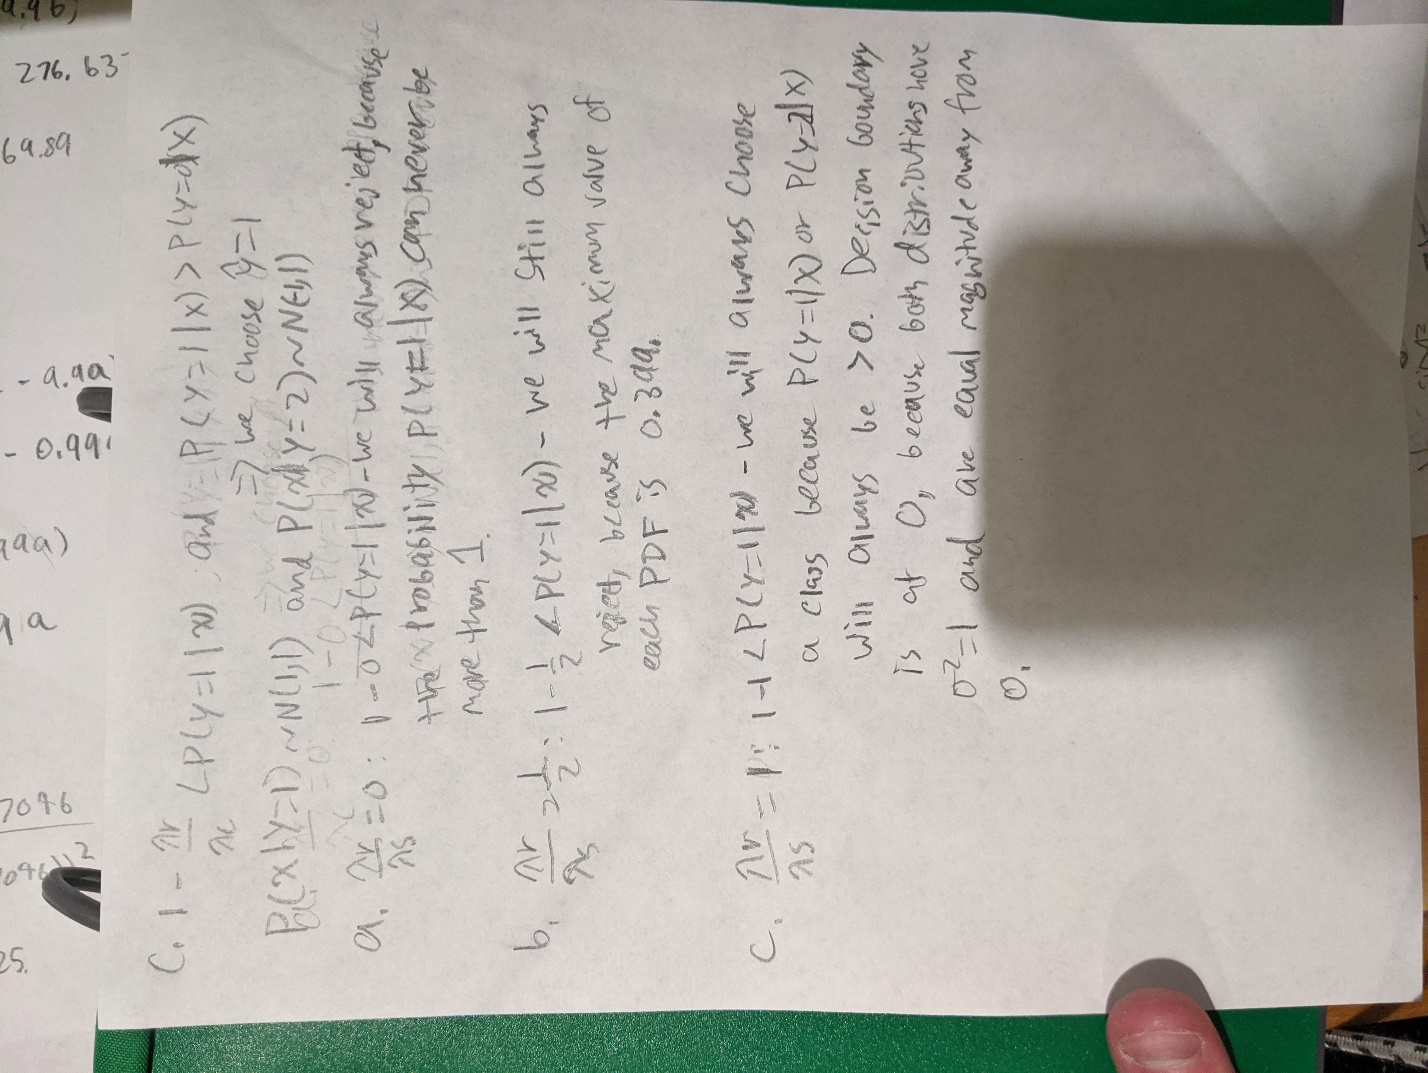 C. 1 - λr/λc < P(Y=1|x) and P(Y=1|x) > P(Y=2|x)
⇒ we choose ŷ=1
P(x|Y=1)~N(1,1) and P(x|Y=2)~N(-1,1)
a. λr/λs = 0 : 1-0<P(Y=1|x) - we will always reject, because
the probability, P(Y=1|x) can never be
more than 1.
b. λr/λs = 1/2 : 1 - 1/2 < P(Y=1|x) - we will still always
reject, because the maximum value of
each PDF is 0.399.
C. λr/λs = 1 : 1-1 < P(Y=1|x) - we will always choose
a class because P(Y=1|x) or P(Y=2|x)
will always be >0. Decision boundary
is at 0, because both distributions have
σ²=1 and are equal magnitude away from
0.
276.63
69.89
- 9.99
- 0.99
99a)
9a
7096
25.